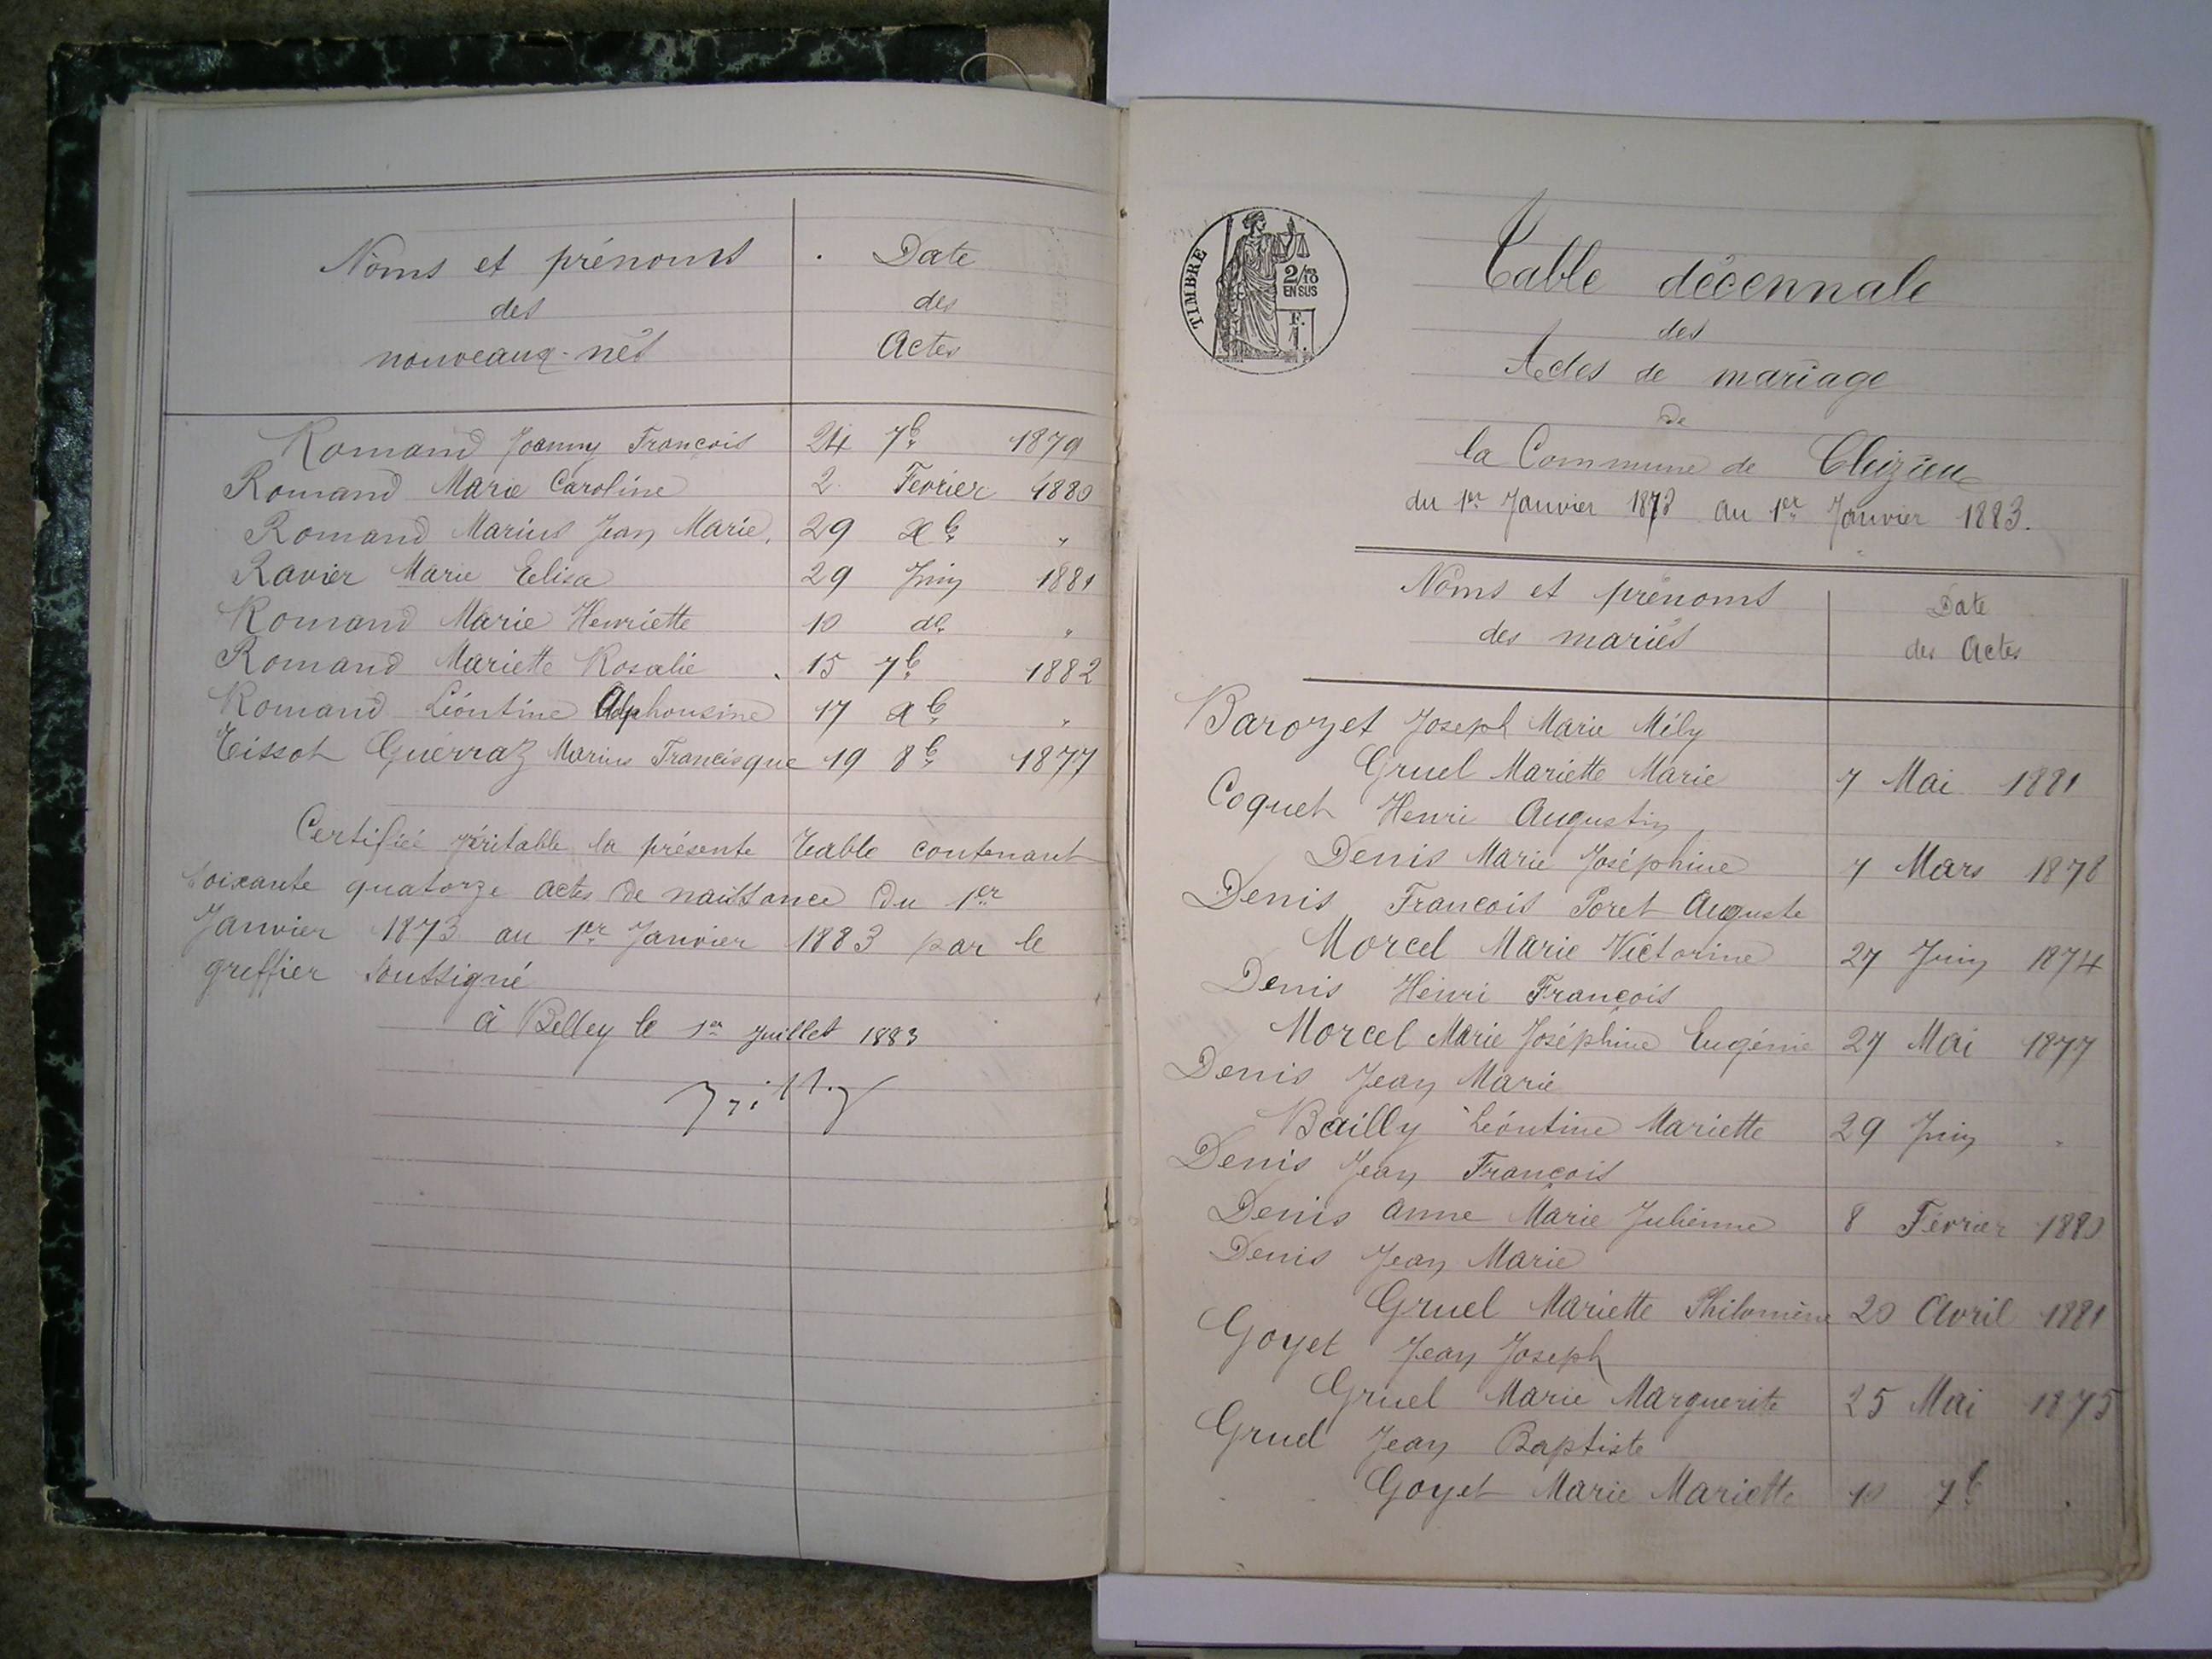 Noms et prénoms
des
nouveaux-nés
Date
des
Actes
Romand Joanny François 24 7b 1879
Romand Marie Caroline 2 Fevrier 1880
Romand Marius Jean Marie, 29 Xb "
Ravier Marie Elisa 29 Juin 1881
Romand Marie Henriette 10 do "
Romand Mariette Rosalie 15 7b 1882
Romand Léontine Alphonsine 17 Xb "
Tissot Guerraz Marius Francisque 19 8b 1877
Certifié véritable la présente Table contenant
soixante quatorze actes de naissance du 1er
Janvier 1873 au 1er Janvier 1883 par le
greffier soussigné
à Belley le 1er Juillet 1883
TIMBRE
2/10
EN SUS
F.
1.
Table décennale
des
Actes de mariage
de
la Commune de
du 1er Janvier 1873 au 1er Janvier 1883.
Noms et prénoms
des mariés
Date
des Actes
Barozet Joseph Marie Mély
Gruel Mariette Marie 7 Mai 1881
Coquet Henri Augustin
Denis Marie Joséphine 7 Mars 1878
Denis François Auguste
Morcel Marie Victorine 27 Juin 1874
Denis Henri François
Morcel Marie Joséphine Eugénie 27 Mai 1877
Denis Jean Marie
Bailly Léontine Mariette 29 Juin "
Denis Jean François
Denis Anne Marie Julienne 8 Février 1880
Denis Jean Marie
Gruel Mariette Philomène 20 Avril 1881
Goyet Jean Joseph
Gruel Marie Marguerite 25 Mai 1875
Gruel Jean Baptiste
Goyet Marie Mariette 10 7b "